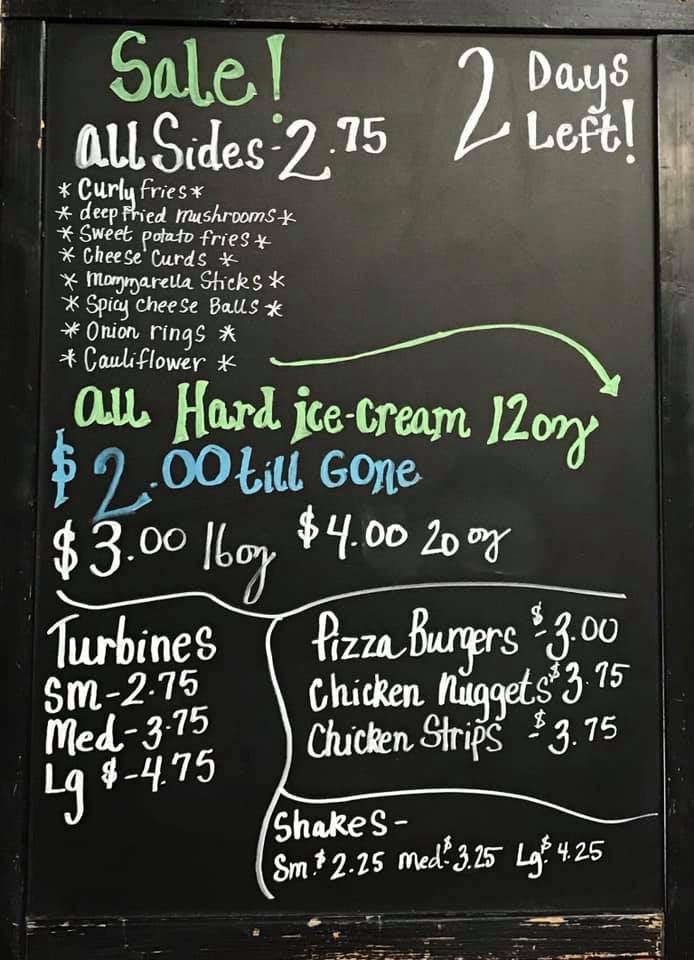 Sale!
2 Days Left!
All Sides - 2.75
* Curly fries *
* deep fried mushrooms *
* Sweet potato fries *
* Cheese Curds *
* Mozzarella Sticks *
* Spicy Cheese Balls *
* Onion rings *
* Cauliflower *
All Hard ice-cream 12oz
$2.00 till Gone
$3.00 16oz $4.00 20 oz
Turbines
Sm - 2.75
Med - 3.75
Lg $ - 4.75
Pizza Burgers $-3.00
Chicken Nuggets $3.75
Chicken Strips $-3.75
Shakes -
Sm.$ 2.25 Med.$ 3.25 Lg.$ 4.25